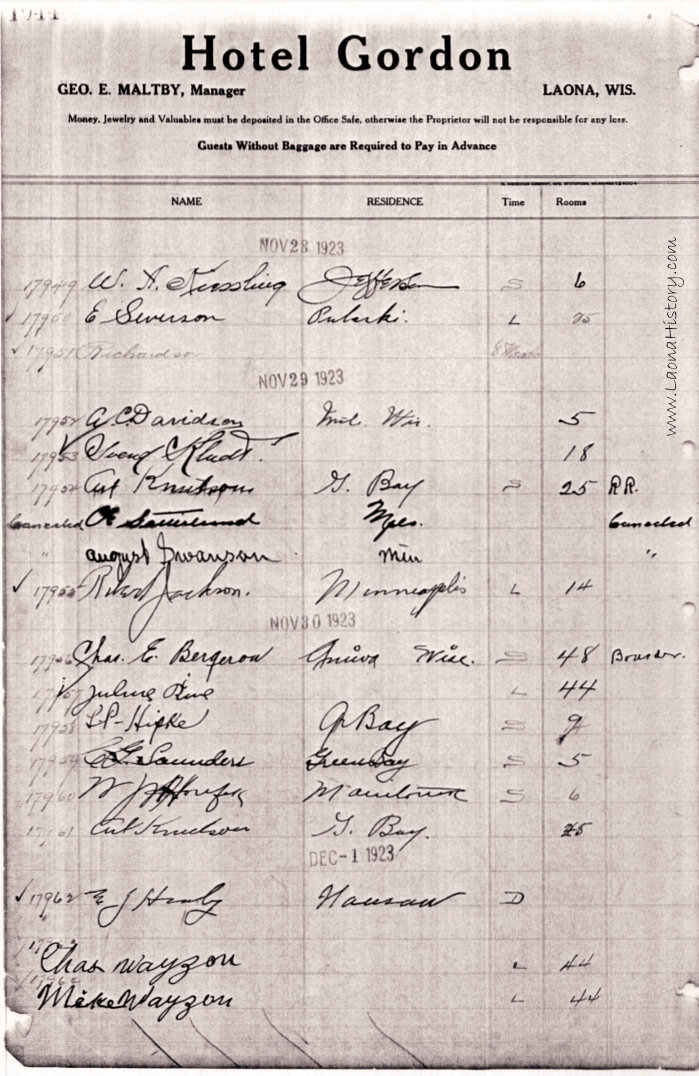 Hotel Gordon
GEO. E. MALTBY, Manager LAONA, WIS.
Money, Jewelry and Valuables must be deposited in the Office Safe, otherwise the Proprietor will not be responsible for any loss.
Guests Without Baggage are Required to Pay in Advance
NAME RESIDENCE Time Rooms
NOV 28 1923
17949 W. A. Kiessling Jefferson S 6
17950 E Siverson Pulaski. L 25
17951 Richardson
NOV 29 1923
17952 A. C. Davidson Mil. Wis. 5
17953 Kludt. 18
17954 Art Knutson G. Bay S 25 RR.
Canceled Mpls. Canceled
" August Swanson Min "
17955 Robert Jackson. Minneapolis L 14
NOV 30 1923
17956 Chas. E. Bergeron Wisc. S 48 Boarder.
17957 L 44
17958 Hipke G Bay S 9
17959 Saunders Green Bay S 5
17960 W J Manitowoc S 6
17961 Art Knutson G. Bay. 25
DEC -1 1923
17962 E J Wausau D
Chas Wayzon L 44
Mike Wayzon L 44
www.LaonaHistory.com